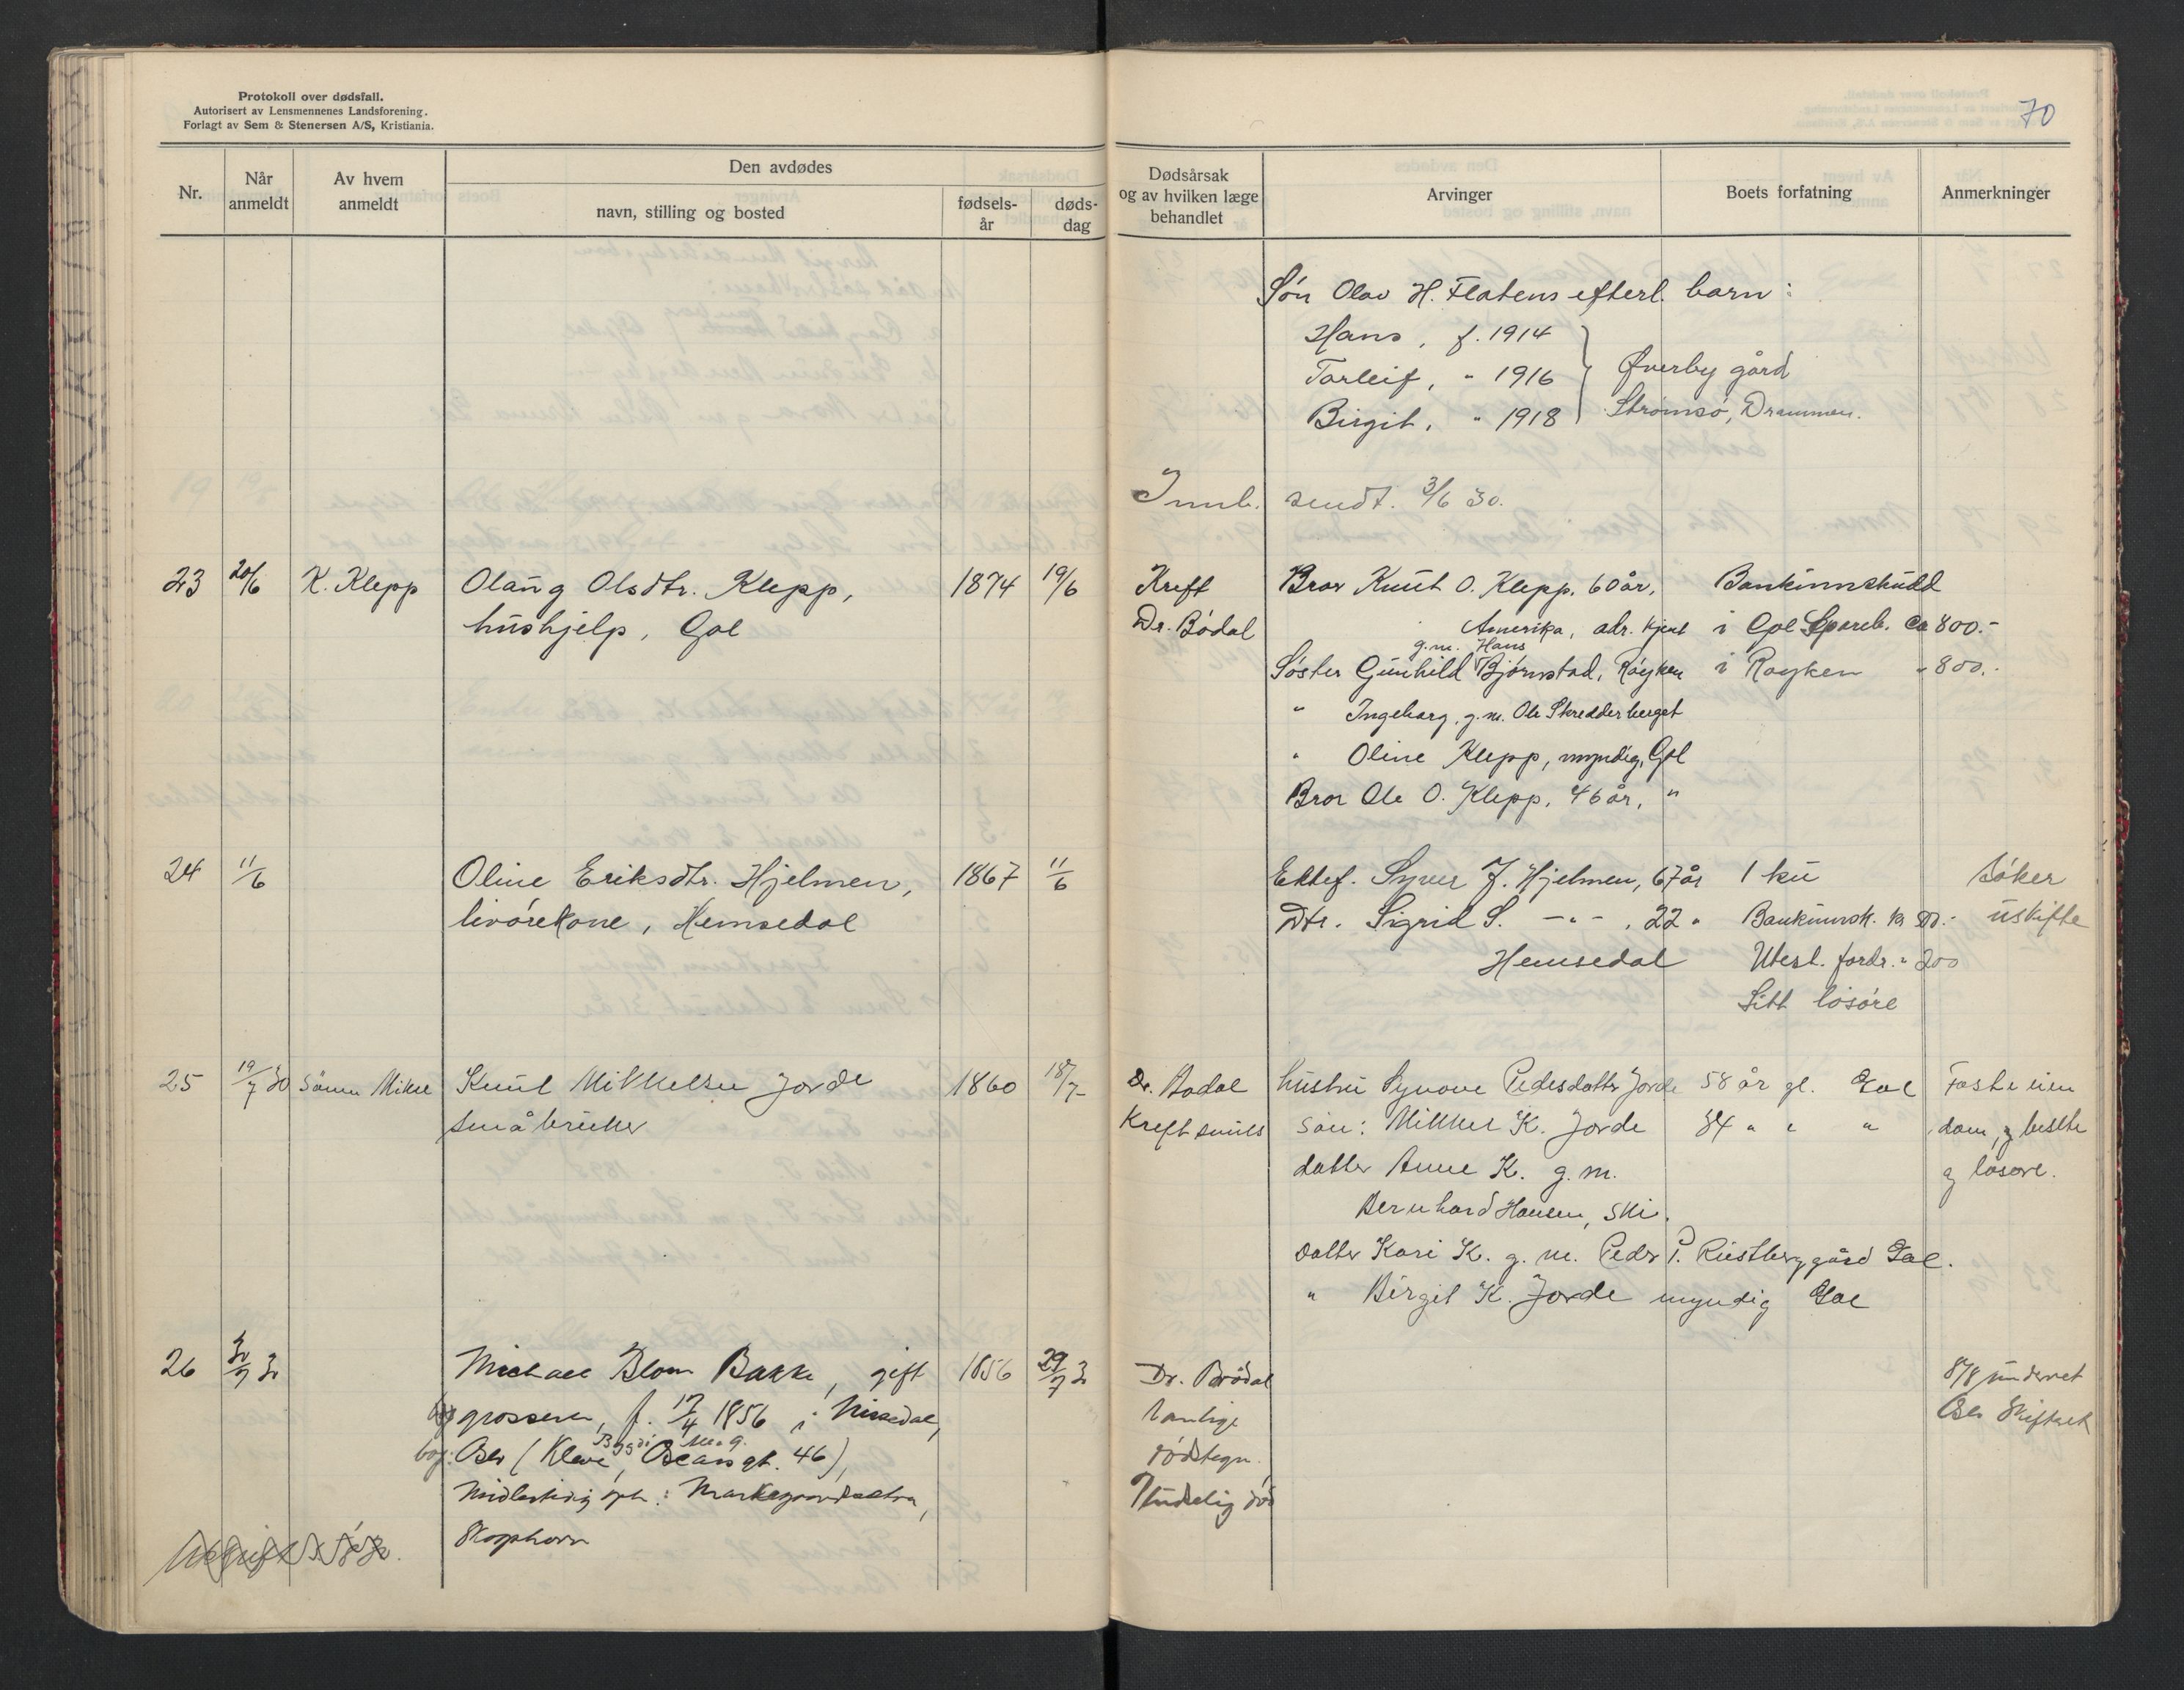 Protokoll over dødsfall.
Autorisert av Lensmennenes Landsforening.
Forlagt av Sem & Stenersen A/S, Kristiania.
70
Nr.
Når anmeldt
Av hvem anmeldt
Den avdødes
navn, stilling og bosted
fødselsår
dødsdag
Dødsårsak og av hvilken læge behandlet
Arvinger
Boets forfatning
Anmerkninger
Søn Olav H. Flatens efterl. barn:
Hans, f. 1914
Torleif, " 1916 Øverby gård
Birgit, " 1918 Strømsø, Drammen.
Innb. sendt. 3/6 30.
23 20/6 K. Klepp Olaug Olsdtr. Klepp, 1874 19/6 Kreft Bror Knut O. Klepp, 60 år, Bankinnskudd
hushjelp, Gol Dr. Bødal Amerika, adr. kjent i Gol Spareb. ca 800.-
g.m. Hans
Søster Gunhild Bjørnstad, Røyken i Røyken " 800.-
" Ingeborg, g.m. Ole Skredderberget
" Oline Klepp, myndig, Gol
Bror Ole O. Klepp, 46 år, "
24 11/6 Oline Eriksdtr. Hjelmen, 1867 11/6 Ektef. Syver J. Hjelmen, 67 år 1 ku Søker
livørekone, Hemsedal Dtr. Sigrid S. -"- , 22 " Bankinnsk. kr 800.- uskifte
Hemsedal Utest. fordr. " 200
Litt løsøre
25 19/7 30 Sønn Mikkel Knut Mikkelsen Jorde 1860 18/7 Dr. Bødal hustru Synove Pedersdatter Jorde 58 år gl. Gol Faste eien
småbruker Kreft søn: Mikkel K. Jorde 34 " " " dom, og besette
datter Anne K. g.m. og løsøre.
Bernhard Hansen, Ski.
Datter Kari K. g. m. Peder P. Rustberggård Gol.
" Birgit K. Jorde myndig Gol
26 30/7 30 Michael Blom Bakke, gift 1856 29/7 30 Dr. Bødal 8/8 underret
grosserer, f. 17/4 1856 i Nissedal, vanlige Oslo Skifteret
Byggdi M.g.
bop: Oslo (Kleve, Oscarsgt. 46), dødstegn.
Midlertidig oph.: Markegardsetra, Pludselig død
Skogshorn